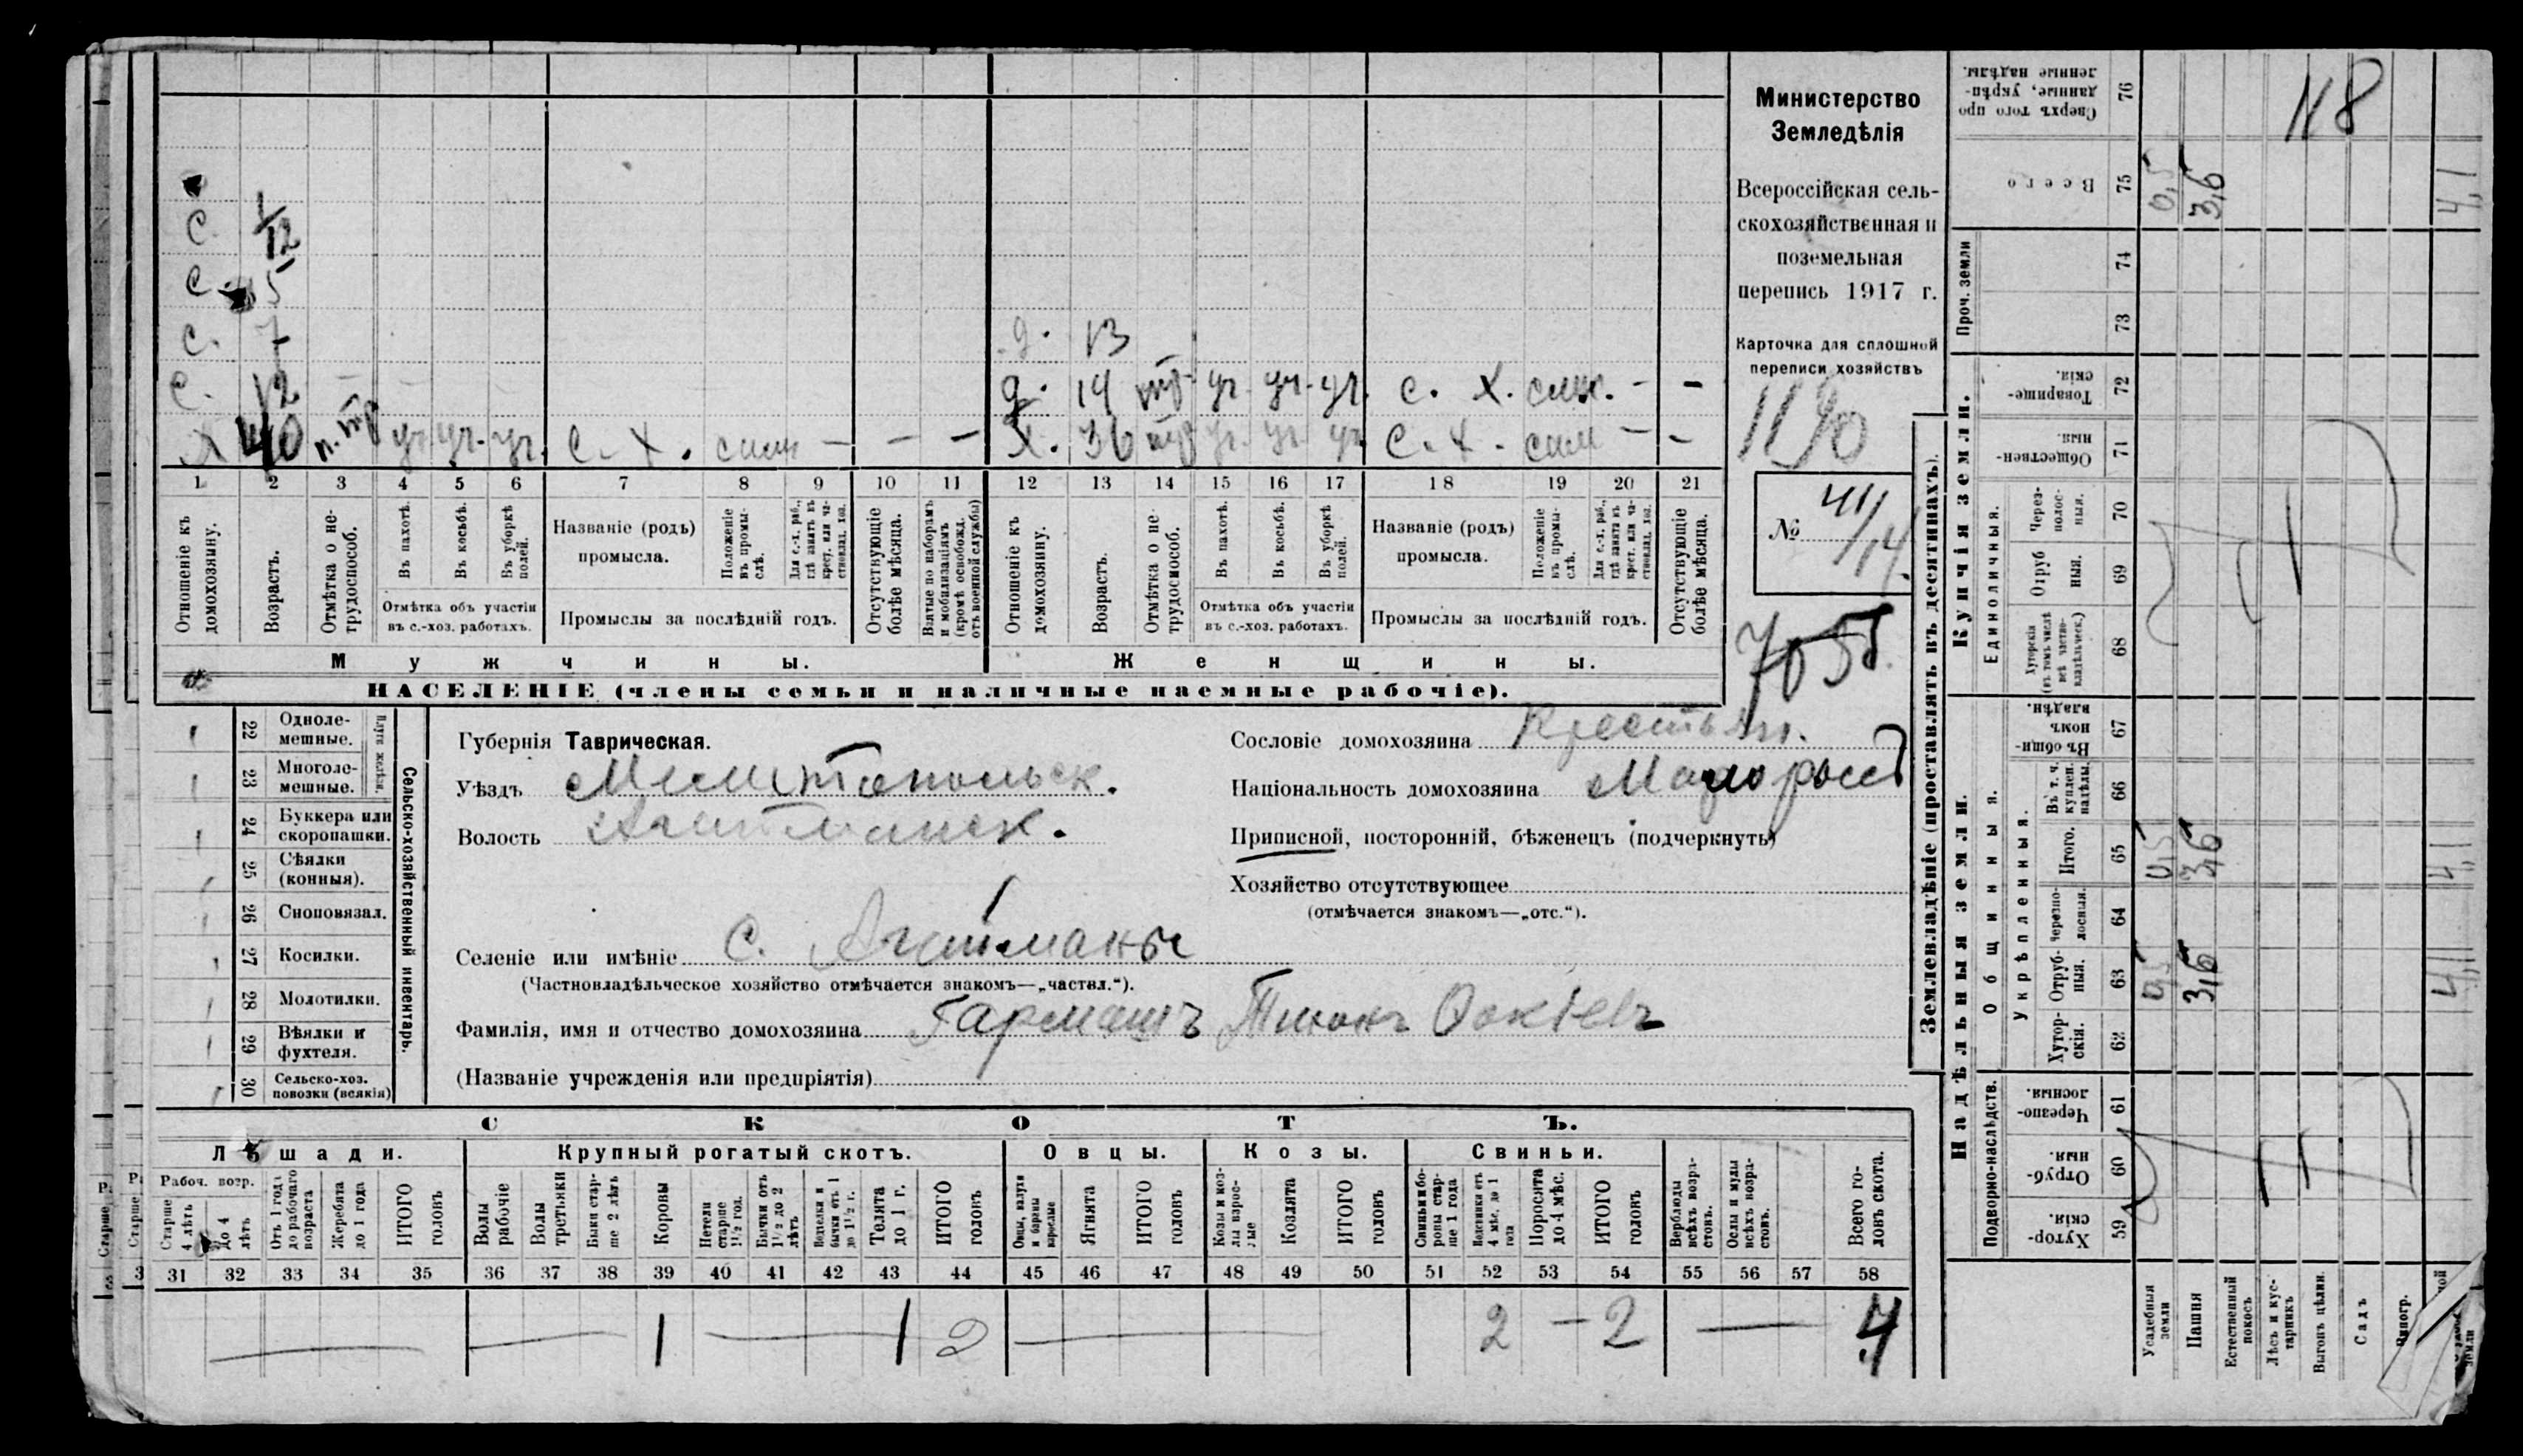 Министерство
Земледѣлія
Всероссійская сель-
скохозяйственная и
поземельная
перепись 1917 г.
Карточка для сплошной
переписи хозяйствъ
1190
№ 41/14
7055
118
С. 1/12
С. 5
С. 7 д. 13
С. 12 д. 14 тр уч. уч. уч. с. х. сам. - -
Х 40 п. тр уч уч. уч. с. х. сам - - - Х. 36 тр уч. уч. уч с. х. сам - -
1 2 3 4 5 6 7 8 9 10 11 12 13 14 15 16 17 18 19 20 21
Отношеніе къ домохозяину.
Возрастъ.
Отмѣтка о не-трудоспособ.
Въ пахотѣ.
Въ косьбѣ.
Въ уборкѣ полей.
Отмѣтка объ участіи въ с.-хоз. работахъ.
Названіе (родъ) промысла.
Положеніе въ промы-слѣ.
Для с.-х. раб., гдѣ занятъ въ крест. или ча-стновлад. хоз.
Промыслы за послѣдній годъ.
Отсутствующіе болѣе мѣсяца.
Взятые по наборамъ и мобилизаціямъ (кромѣ освобожд. отъ военной службы)
Отношеніе къ домохозяину.
Возрастъ.
Отмѣтка о не-трудоспособ.
Въ пахотѣ.
Въ косьбѣ.
Въ уборкѣ полей.
Отмѣтка объ участіи въ с.-хоз. работахъ.
Названіе (родъ) промысла.
Положеніе въ промы-слѣ.
Для с.-х. раб., гдѣ занятъ въ крест. или ча-стновлад. хоз.
Промыслы за послѣдній годъ.
Отсутствующіе болѣе мѣсяца.
Мужчины. Женщины.
НАСЕЛЕНІЕ (члены семьи и наличные наемные рабочіе).
Сельско-хозяйственный инвентарь.
Плуги желѣзн.
22 Одноле-мешные.
23 Многоле-мешные.
24 Буккера или скоропашки.
25 Сѣялки (конныя).
26 Сноповязал.
27 Косилки.
28 Молотилки.
29 Вѣялки и фухтеля.
30 Сельско-хоз. повозки (всякія)
Губернія Таврическая.
Уѣздъ Мелитопольск.
Волость Агайманск.
Селеніе или имѣніе с. Агайманы
(Частновладѣльческое хозяйство отмѣчается знакомъ—„частвл.“).
Фамилія, имя и отчество домохозяина Гармашъ Тихонъ
(Названіе учрежденія или предпріятія)
Сословіе домохозяина Крестьян.
Національность домохозяина Малоросс
Приписной, посторонній, бѣженецъ (подчеркнуть)
Хозяйство отсутствующее
(отмѣчается знакомъ—„отс.“).
СКОТЪ.
Лошади. Крупный рогатый скотъ. Овцы. Козы. Свиньи.
Рабоч. возр.
Старше 4 лѣтъ
До 4 лѣтъ
Отъ 1 года до рабочаго возраста
Жеребята до 1 года
ИТОГО головъ
Волы рабочіе
Волы третьяки
Быки стар-ше 2 лѣтъ
Коровы
Нетели старше 1½ год.
Бычки отъ 1½ до 2 лѣтъ
Телки и бычки отъ 1 до 1½ г.
Телята до 1 г.
ИТОГО головъ
Овцы, валухи и бараны взрослые
Ягнята
ИТОГО головъ
Козы и коз-лы взрос-лые
Козлята
ИТОГО головъ
Свиньи и бо-ровы стар-ше 1 года
Подсвинки отъ 4 мѣс. до 1 года
Поросята до 4 мѣс.
ИТОГО головъ
Верблюды всѣхъ возра-стовъ.
Ослы и мулы всѣхъ возра-стовъ.
Всего го-ловъ скота.
31 32 33 34 35 36 37 38 39 40 41 42 43 44 45 46 47 48 49 50 51 52 53 54 55 56 57 58
1 1 2 2 - 2 4
Землевладѣніе (проставлять въ десятинахъ).
Надѣльныя земли.
Купчія земли.
Проч. земли
Подворно-наслѣдств.
Общинныя.
Укрѣпленныя.
Единоличныя.
59 Хутор-скія.
60 Отруб-ныя.
61 Черезпо-лосныя.
62 Хутор-скія.
63 Отруб-ныя. 0,5 3,6 4,1
64 Черезпо-лосныя.
65 Итого. 0,5 3,6 4,1
66 Въ т. ч. куплен. надѣлы.
67 Въ общин-номъ владѣн.
68 Хуторскія (въ томъ числѣ всѣ частно-владѣльческ.)
69 Отруб ныя.
70 Через-полос-ныя.
71 Обществен-ныя.
72 Товарище-скія.
73
74
75 Всего 0,5 3,6 4,1
76 Сверхъ того про данные, укрѣп-ленные надѣлы.
Усадебныя земли
Пашня
Естественный покосъ
Лѣсъ и кус-тарникъ
Выгонъ цѣлин.
Садъ
Виногр.